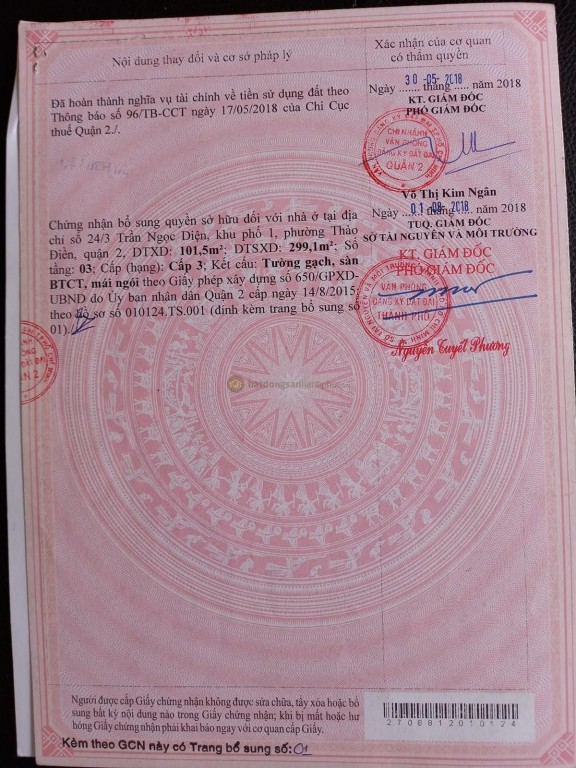 Nội dung thay đổi và cơ sở pháp lý
Xác nhận của cơ quan
có thẩm quyền
Đã hoàn thành nghĩa vụ tài chính về tiền sử dụng đất theo
Thông báo số 96/TB-CCT ngày 17/05/2018 của Chi Cục
thuế Quận 2./.
30 -05- 2018
Ngày ....... tháng ..... năm 2018
KT. GIÁM ĐỐC
PHÓ GIÁM ĐỐC
CHI NHÁNH
VĂN PHÒNG
ĐĂNG KÝ ĐẤT ĐAI
QUẬN 2
Võ Thị Kim Ngân
Chứng nhận bổ sung quyền sở hữu đối với nhà ở tại địa
chỉ số 24/3 Trần Ngọc Diện, khu phố 1, phường Thảo
Điền, quận 2, DTXD: 101,5m²; DTSXD: 299,1m²; Số
tầng: 03; Cấp (hạng): Cấp 3; Kết cấu: Tường gạch, sàn
BTCT, mái ngói theo Giấy phép xây dựng số 650/GPXD-
UBND do Ủy ban nhân dân Quận 2 cấp ngày 14/8/2015;
theo hồ sơ số 010124.TS.001 (đính kèm trang bổ sung số
01)./.
01 -08- 2018
Ngày ....... tháng ..... năm 2018
TUQ. GIÁM ĐỐC
SỞ TÀI NGUYÊN VÀ MÔI TRƯỜNG
KT. GIÁM ĐỐC
PHÓ GIÁM ĐỐC
VĂN PHÒNG
ĐĂNG KÝ ĐẤT ĐAI
THÀNH PHỐ
Nguyễn Tuyết Phương
Người được cấp Giấy chứng nhận không được sửa chữa, tẩy xóa hoặc bổ
sung bất kỳ nội dung nào trong Giấy chứng nhận; khi bị mất hoặc hư
hỏng Giấy chứng nhận phải khai báo ngay với cơ quan cấp Giấy.
2706812010124
Kèm theo GCN này có Trang bổ sung số: 01